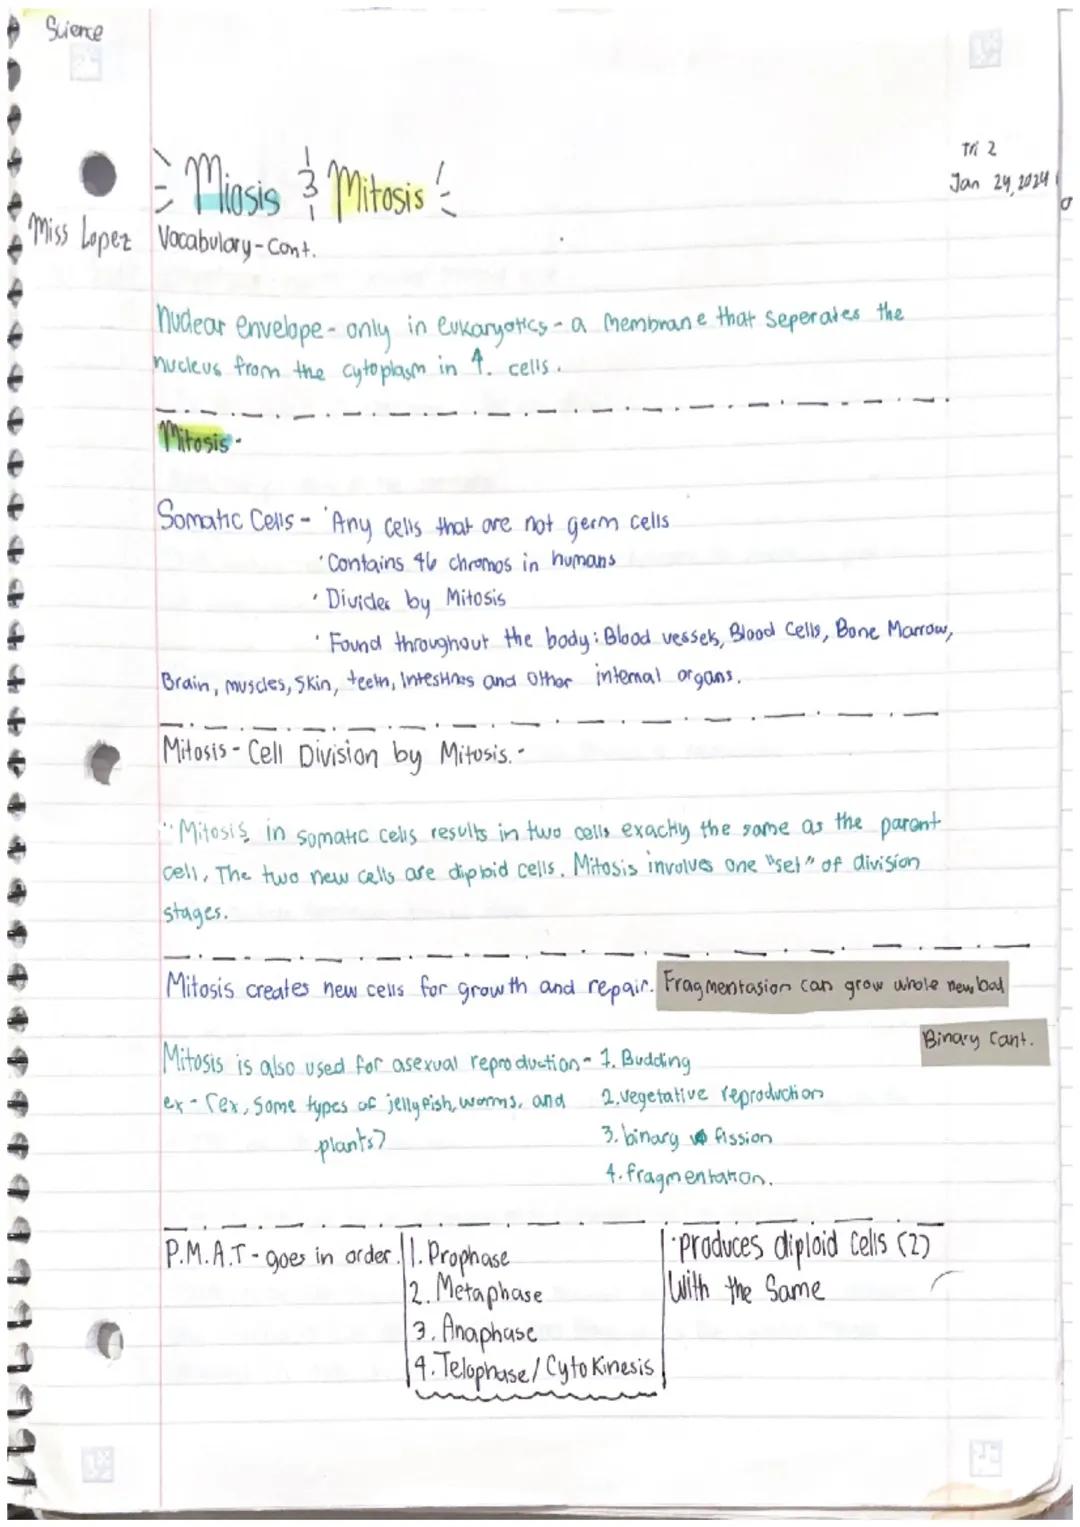 Science
Tri 2
Jan 24, 2024
Miosis & Mitosis
Miss Lopez
Vocabulary-Cont.
nuclear envelope - only in eukaryotics - a membrane that seperates the
nucleus from the cytoplasm in ↑. cells.
Mitosis-
Somatic Cells - ·Any cells that are not germ cells
·Contains 46 chromos in humans
·Divides by Mitosis
·Found throughout the body: Blood vessels, Blood Cells, Bone Marrow,
Brain, muscles, Skin, teeth, Intestines and Other internal organs.
Mitosis - Cell Division by Mitosis.-
"Mitosis in somatic cells results in two cells exactly the same as the parent
cell, The two new cells are diploid cells. Mitosis involves one "set" of division
stages.
Mitosis creates new cells for growth and repair. Fragmentasion can grow whole new bod
Binary Cant.
Mitosis is also used for asexual reproduction - 1. Budding
ex - (ex, Some types of jellyfish, worms, and 2. vegetative reproduction
plants) 3. binary fission
4. fragmentation.
P.M.A.T - goes in order. 1. Prophase ·produces diploid Cells (2)
2. Metaphase With the Same
3. Anaphase
4. Telophase/Cyto Kinesis